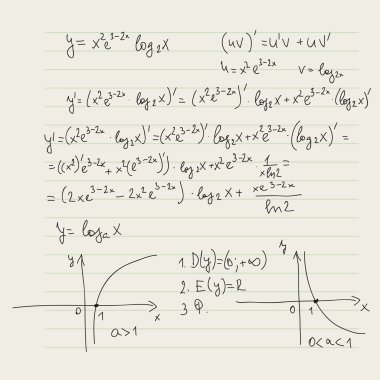 y = x²e³⁻²ˣ log₂x (uv)' = u'v + uv'
u = x²e³⁻²ˣ v = log₂ₓ
y' = (x²e³⁻²ˣ · log₂x)' = (x²e³⁻²ˣ)' · log₂x + x²e³⁻²ˣ · (log₂x)'
y' = (x²e³⁻²ˣ · log₂x)' = (x²e³⁻²ˣ)' · log₂x + x²e³⁻²ˣ · (log₂x)' =
= ((x²)'e³⁻²ˣ + x²(e³⁻²ˣ)') · log₂x + x²e³⁻²ˣ · 1/(x ln2) =
= (2xe³⁻²ˣ − 2x²e³⁻²ˣ) · log₂x + xe³⁻²ˣ/ln2
y = logₐx
y
0 1 x
a > 1
1. D(y) = (0; +∞)
2. E(y) = R
3.
y
0 1 x
0 < a < 1